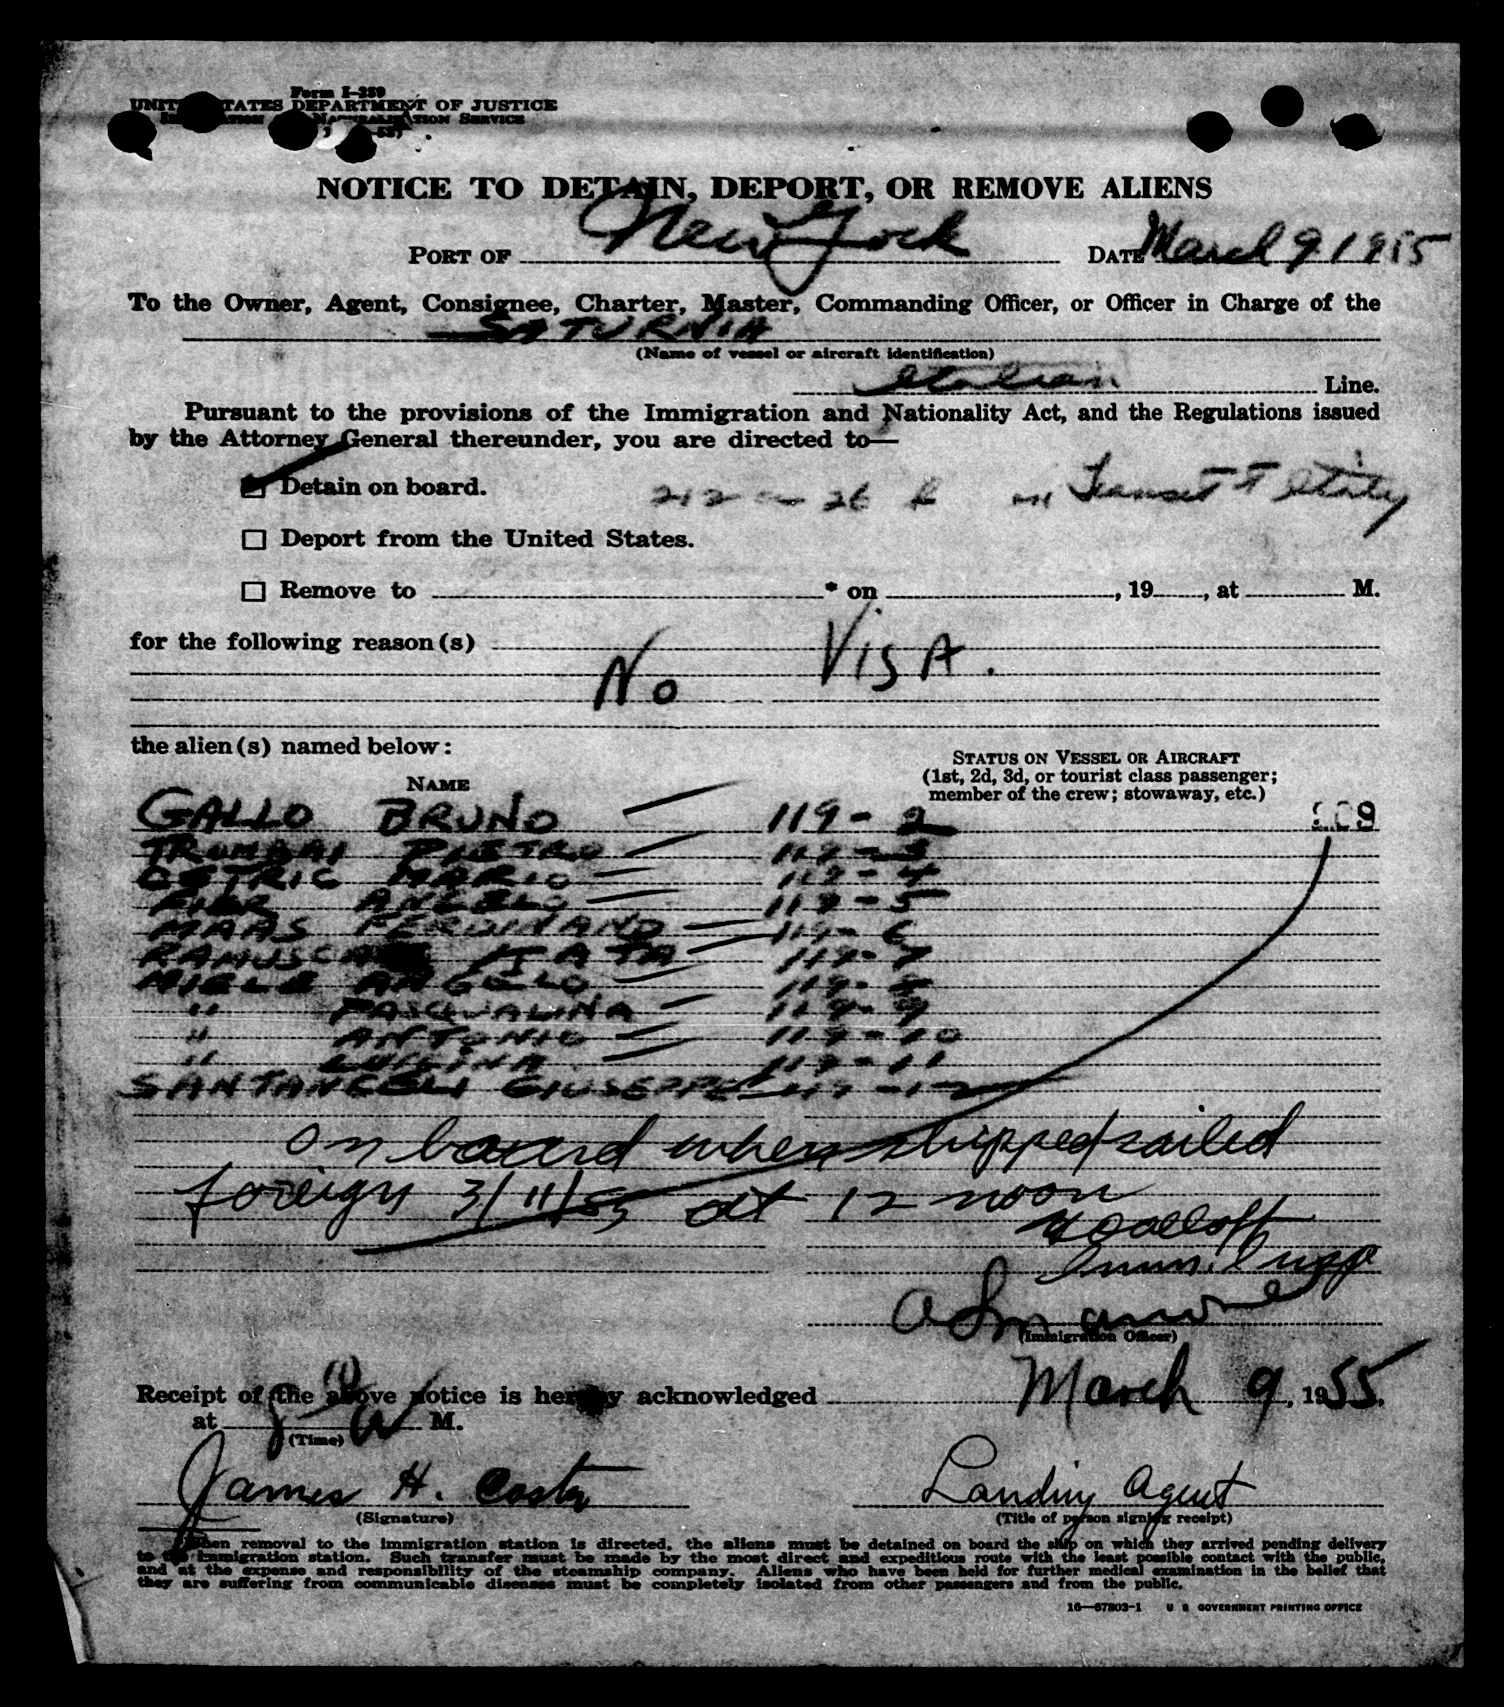 Form I-259
UNITED STATES DEPARTMENT OF JUSTICE
Immigration and Naturalization Service
NOTICE TO DETAIN, DEPORT, OR REMOVE ALIENS
PORT OF New York DATE March 9 1955
To the Owner, Agent, Consignee, Charter, Master, Commanding Officer, or Officer in Charge of the
SATURNIA
(Name of vessel or aircraft identification)
Italian Line.
Pursuant to the provisions of the Immigration and Nationality Act, and the Regulations issued
by the Attorney General thereunder, you are directed to—
Detain on board. 212 a 26 in Transit Italy
Deport from the United States.
Remove to * on , 19 , at M.
for the following reason(s)
No VISA.
the alien(s) named below:
STATUS ON VESSEL OR AIRCRAFT
(1st, 2d, 3d, or tourist class passenger;
member of the crew; stowaway, etc.)
NAME
GALLO BRUNO 119-2
PIETRO 119-3
MARIO 119-4
ANGELO 119-5
MAAS FERDINAND 119-6
119-7
MIELE ANGELO 119-8
" PASQUALINA 119-9
" ANTONIO 119-10
" LUIGINA 119-11
SANTANGELI GIUSEPPE 119-12
on board when shipped/sailed
foreign 3/11/55 at 12 noon
Imm. Insp
(Immigration Officer)
Receipt of the above notice is hereby acknowledged March 9, 1955.
at M.
(Time)
James H. Costa Landing Agent
(Signature) (Title of person signing receipt)
When removal to the immigration station is directed, the aliens must be detained on board the ship on which they arrived pending delivery
to the immigration station. Such transfer must be made by the most direct and expeditious route with the least possible contact with the public,
and at the expense and responsibility of the steamship company. Aliens who have been held for further medical examination in the belief that
they are suffering from communicable diseases must be completely isolated from other passengers and from the public.
16—67803-1 U S GOVERNMENT PRINTING OFFICE